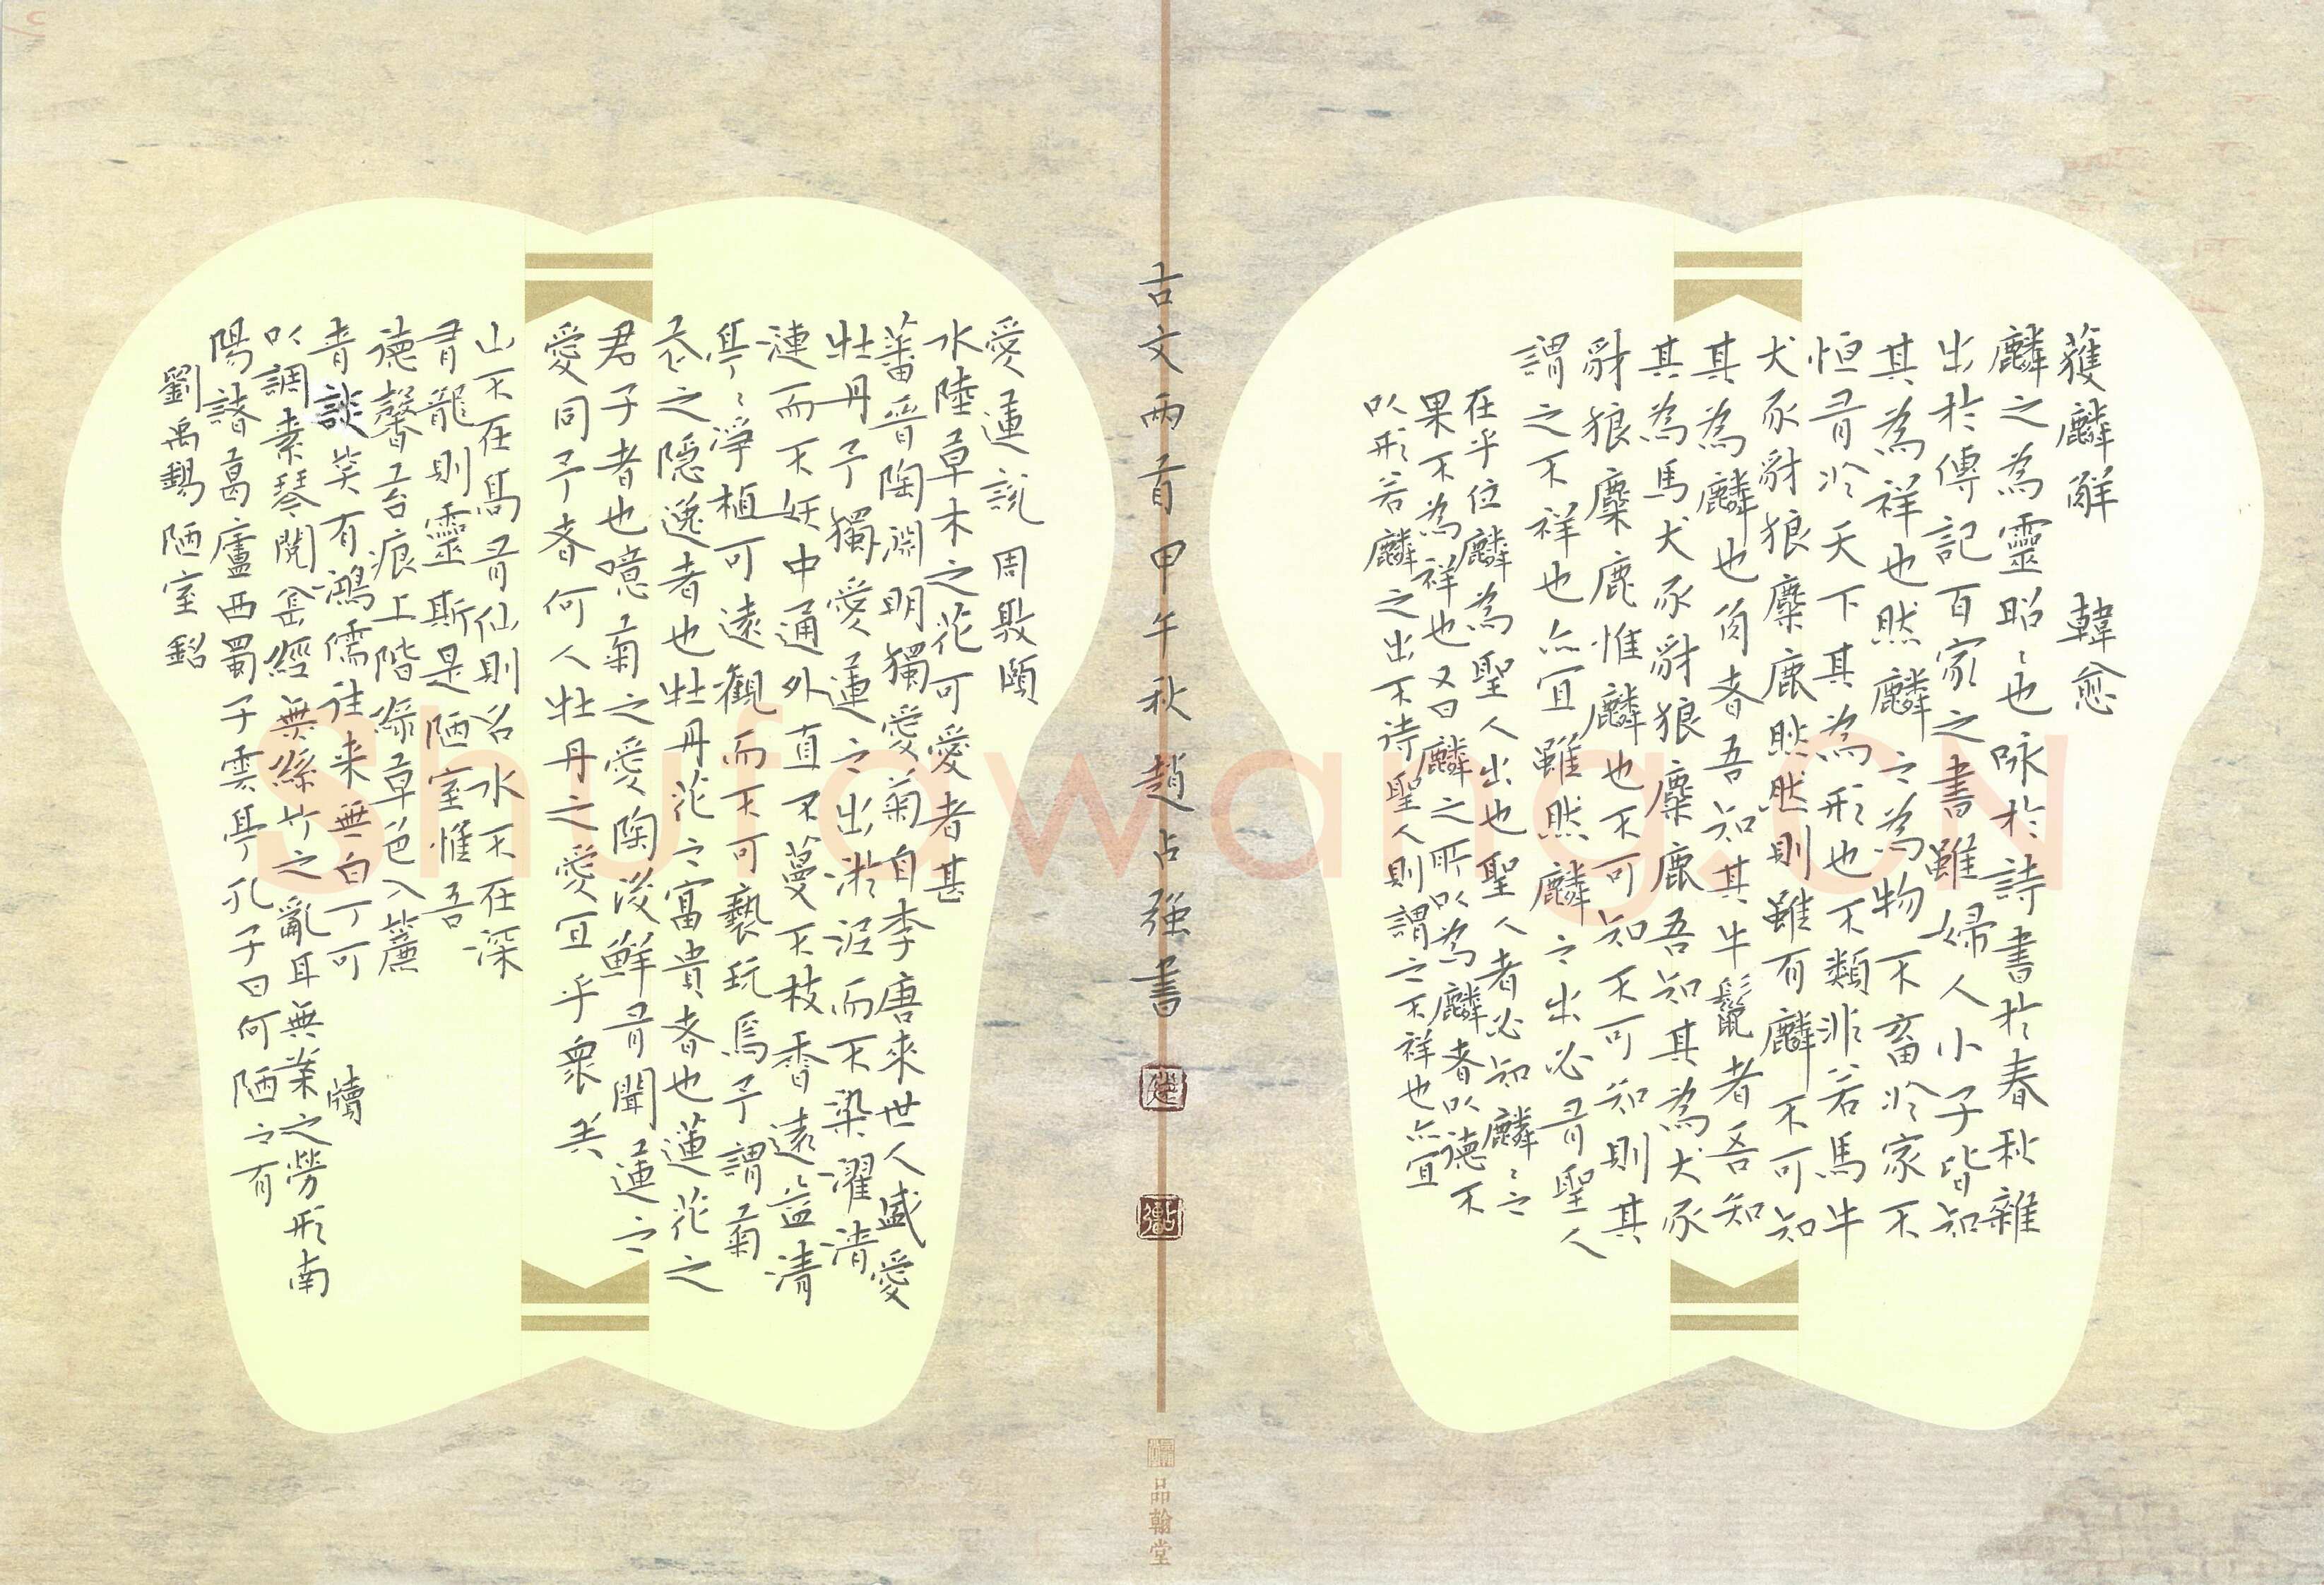 獲麟解 韓愈
麟之為靈昭〻也咏於詩書於春秋雜
出於傳記百家之書雖婦人小子皆知
其為祥也然麟之為物不畜於家不
恒有於天下其為形也不類非若馬牛
犬豕豺狼麋鹿然然則雖有麟不可知
其為麟也角者吾知其牛鬣者吾知
其為馬犬豕豺狼麋鹿吾知其為犬豕
豺狼麋鹿惟麟也不可知不可知則其
謂之不祥也亦宜雖然麟之出必有聖人
在乎位麟為聖人出也聖人者必知麟〻之
果不為祥也又曰麟之所以為麟者以德不
以形若麟之出不待聖人則謂之不祥也亦宜
古文兩首甲午秋趙占強書
愛蓮說 周敦頤
水陸草木之花可愛者甚
蕃晉陶淵明獨愛菊自李唐來世人盛愛
牡丹予獨愛蓮之出淤泥而不染濯清
漣而不妖中通外直不蔓不枝香遠益清
亭〻淨植可遠觀而不可褻玩焉予謂菊
花之隱逸者也牡丹花之富貴者也蓮花之
君子者也噫菊之愛陶後鮮有聞蓮之
愛同予者何人牡丹之愛宜乎眾矣
山不在高有仙則名水不在深
有龍則靈斯是陋室惟吾
德馨苔痕上階綠草色入簾
青談笑有鴻儒往来無白丁可
以調素琴閱金經無絲竹之亂耳無案牘之勞形南
陽諸葛廬西蜀子雲亭孔子曰何陋之有
劉禹錫陋室銘
品翰堂
Shufawang.CN